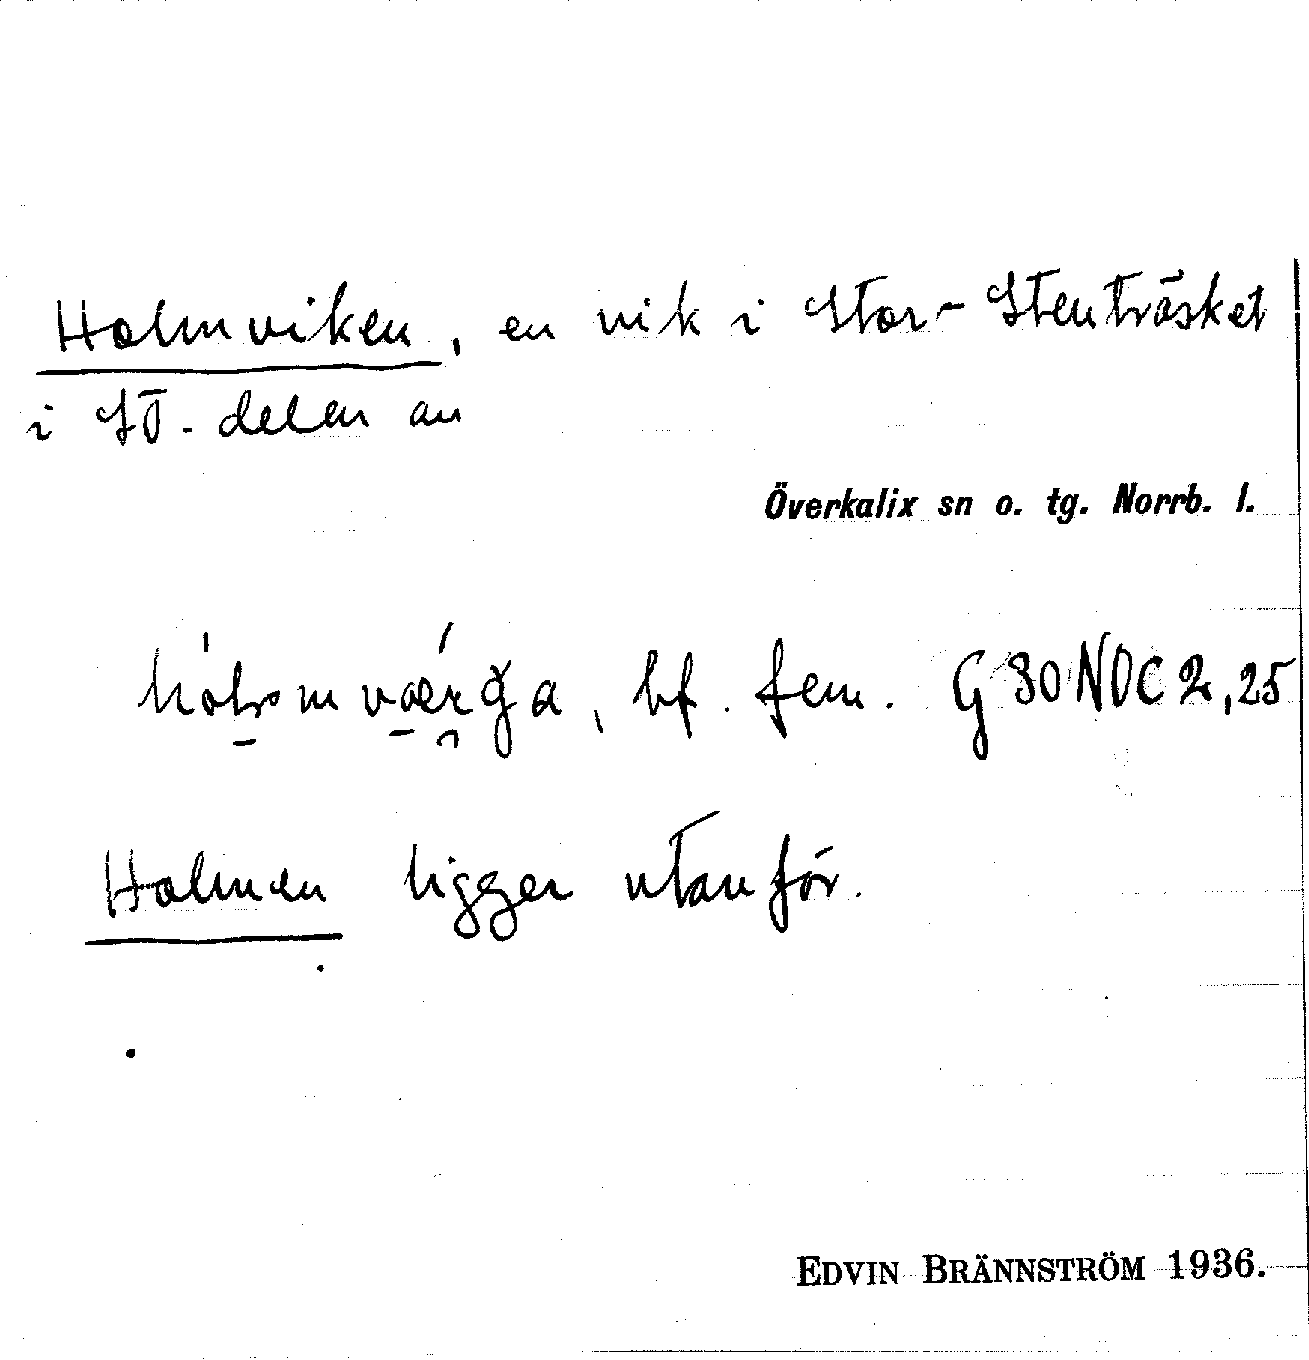 Holmviken, en vik i Stor-Stenträsket
i SÖ. delen av
Överkalix sn o. tg. Norrb. l.
bf. fem. G 30 NOC 2,25
Holmen ligger utanför.
EDVIN BRÄNNSTRÖM 1936.